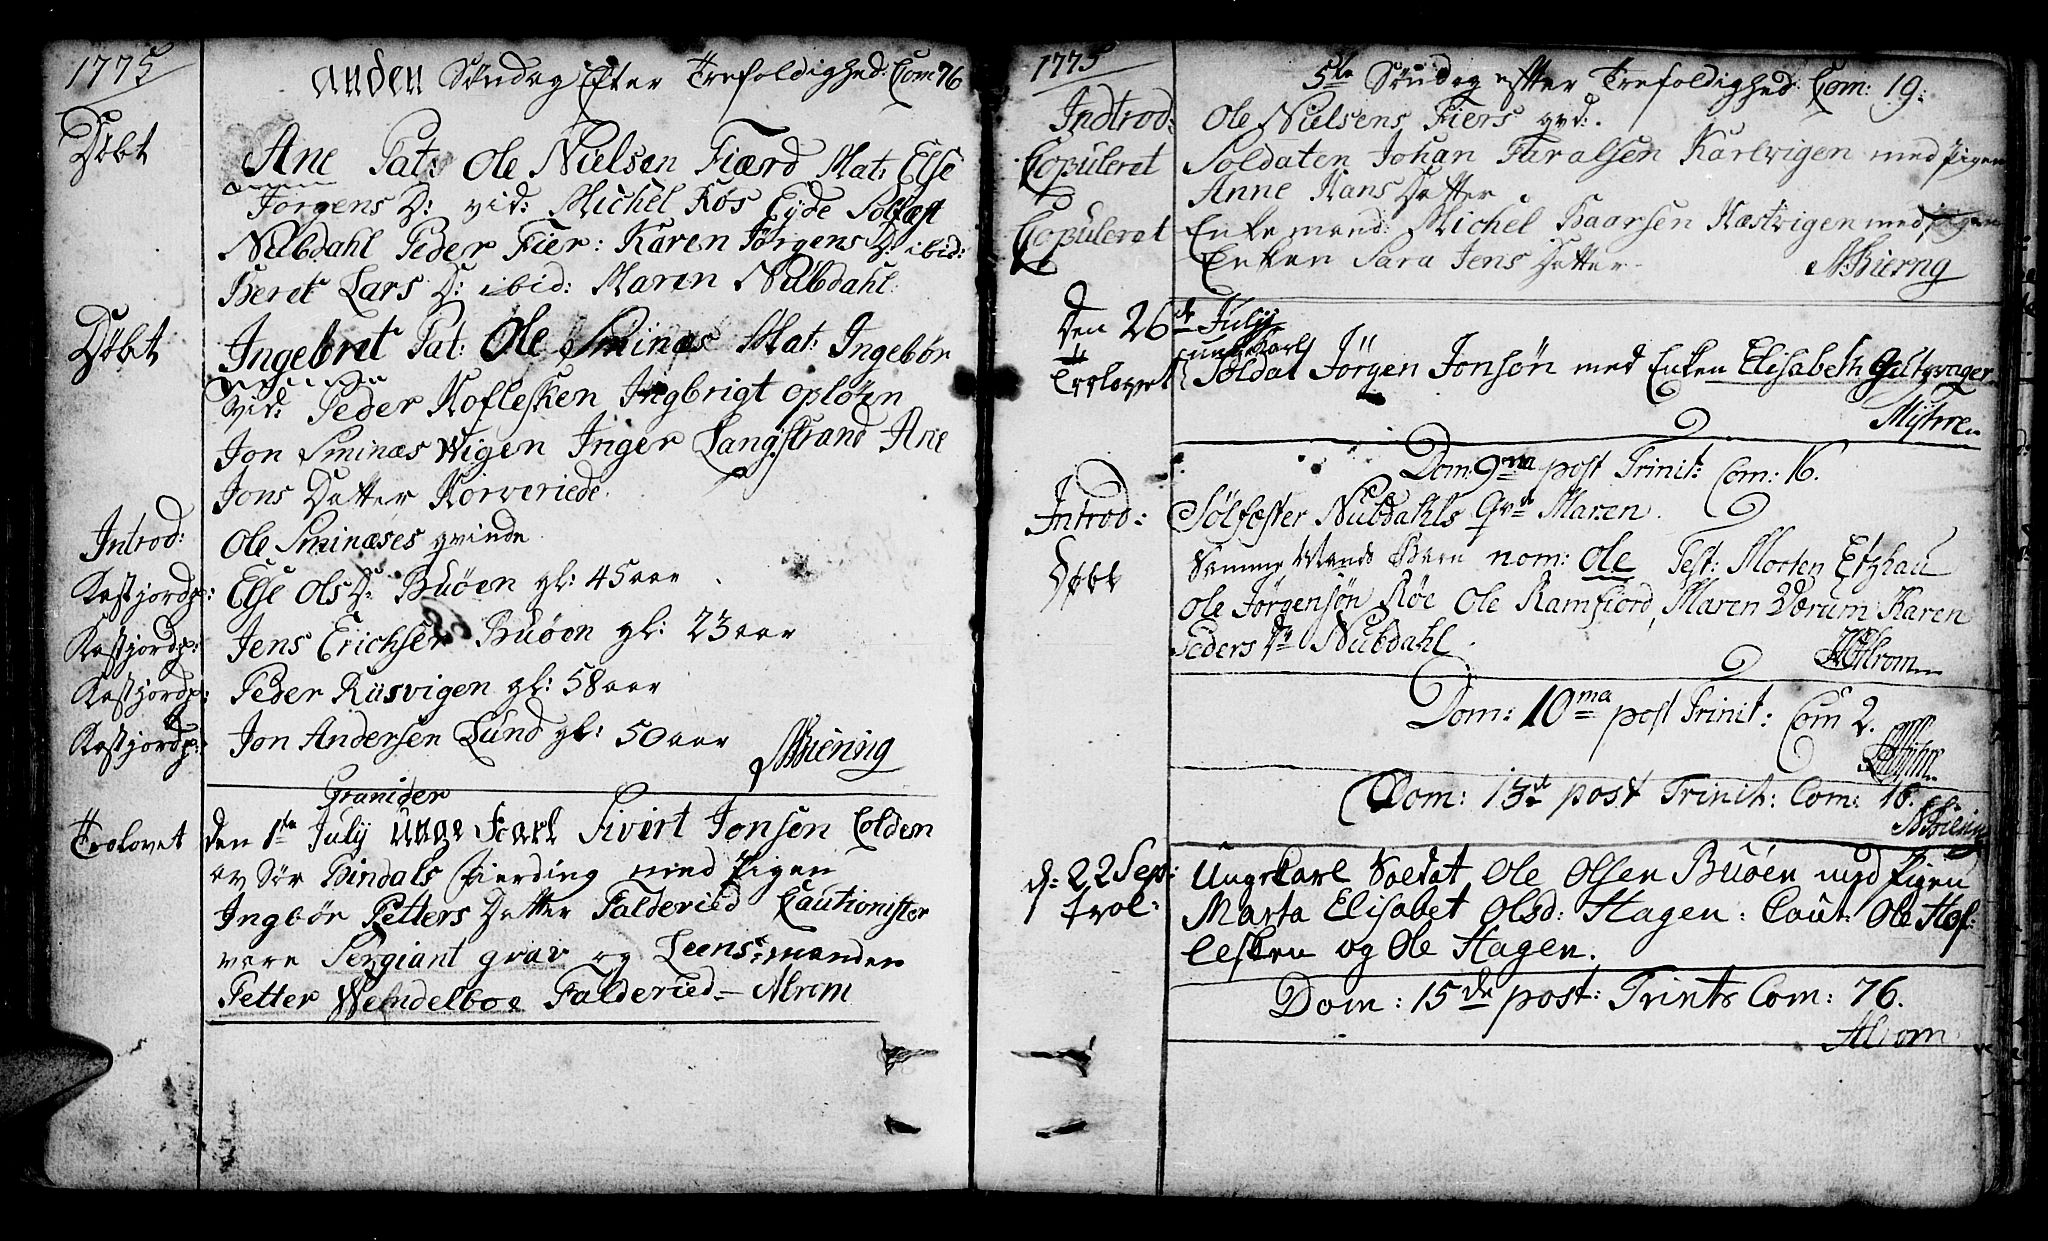 1775
anden Søndag Efter Trefoldighed: Com 76
Døbt
Ane Pat: Ole Nielsen Fiærd Mat: Else
Jørgens D: vid: Michel Røs Eyde Solfæst
Nubdahl Peder Fier: Karen Jørgens D: ibid:
Beret Lars D: ibid: Maren Nubdahl.
Døbt
Ingebret Pat: Ole Sminæs Mat: Ingebør
vid: Peder Hoflesken Ingbrigt Opløen
Jon Sminæs Wigen Inger Langstrand Ane
Jons Datter Horveriede.
Introd: Ole Sminæses qvinde
Kastjordp: Else Ols D: Buøen gl: 45 aar
Kastjordp: Jens Erichsen Buøen gl: 23 aar
Kastjordp: Peder Risvigen gl: 58 aar
Kastjordp: Jon Andersen Lund gl: 50 aar
MBiering
Graniger
Trolovet den 1te July unge Karl Sivert Jonsen Colden
av Sør Bindals Fierding med Pigen
Ingbør Petters Datter Falderied Cautionister
vare Sergiant grav og Leens-manden
Petter Wendelboe Falderied – Alrom
1775
5te Søndag efter Trefoldighed Com: 19:
Indtrod: Ole Nielsens Fiers qvd:
Copuleret Soldaten Johan Haralsen Kartvigen med pigen
Anne Hans Datter
Copuleret Enke mand: Michel Haarsen Næstvigen med
Enken Sara Jens Datter
MBierng
Den 26de July
unge Karl
Trolovet Soldat Jørgen Jonsøn med Enken Elisabeth
Myhre
Dom: 9na post Trinit: Com: 16.
Introd: Sølfester Nubdahls Qvde Maren
Døbt Samme Mands Barn nom: Ole Test: Morten Etzhau
Ole Jørgensøn Røe Ole Ramfiord, Maren Værum Karen
Peders Dr Nubdahl.
Alrom
Dom: 10ma post Trinit: Com 2.
Dom: 13de post Trinit: Com: 16.
MBiering
d: 22 Sep: Ungekarl Soldat Ole Olsen Buøen med Pigen
Trol: Marta Elisabet Olsd: Hagen: Caut: Ole Hof:
lesken og Ole Hagen.
Dom: 15de post: Trints Com: 76.
Alrom